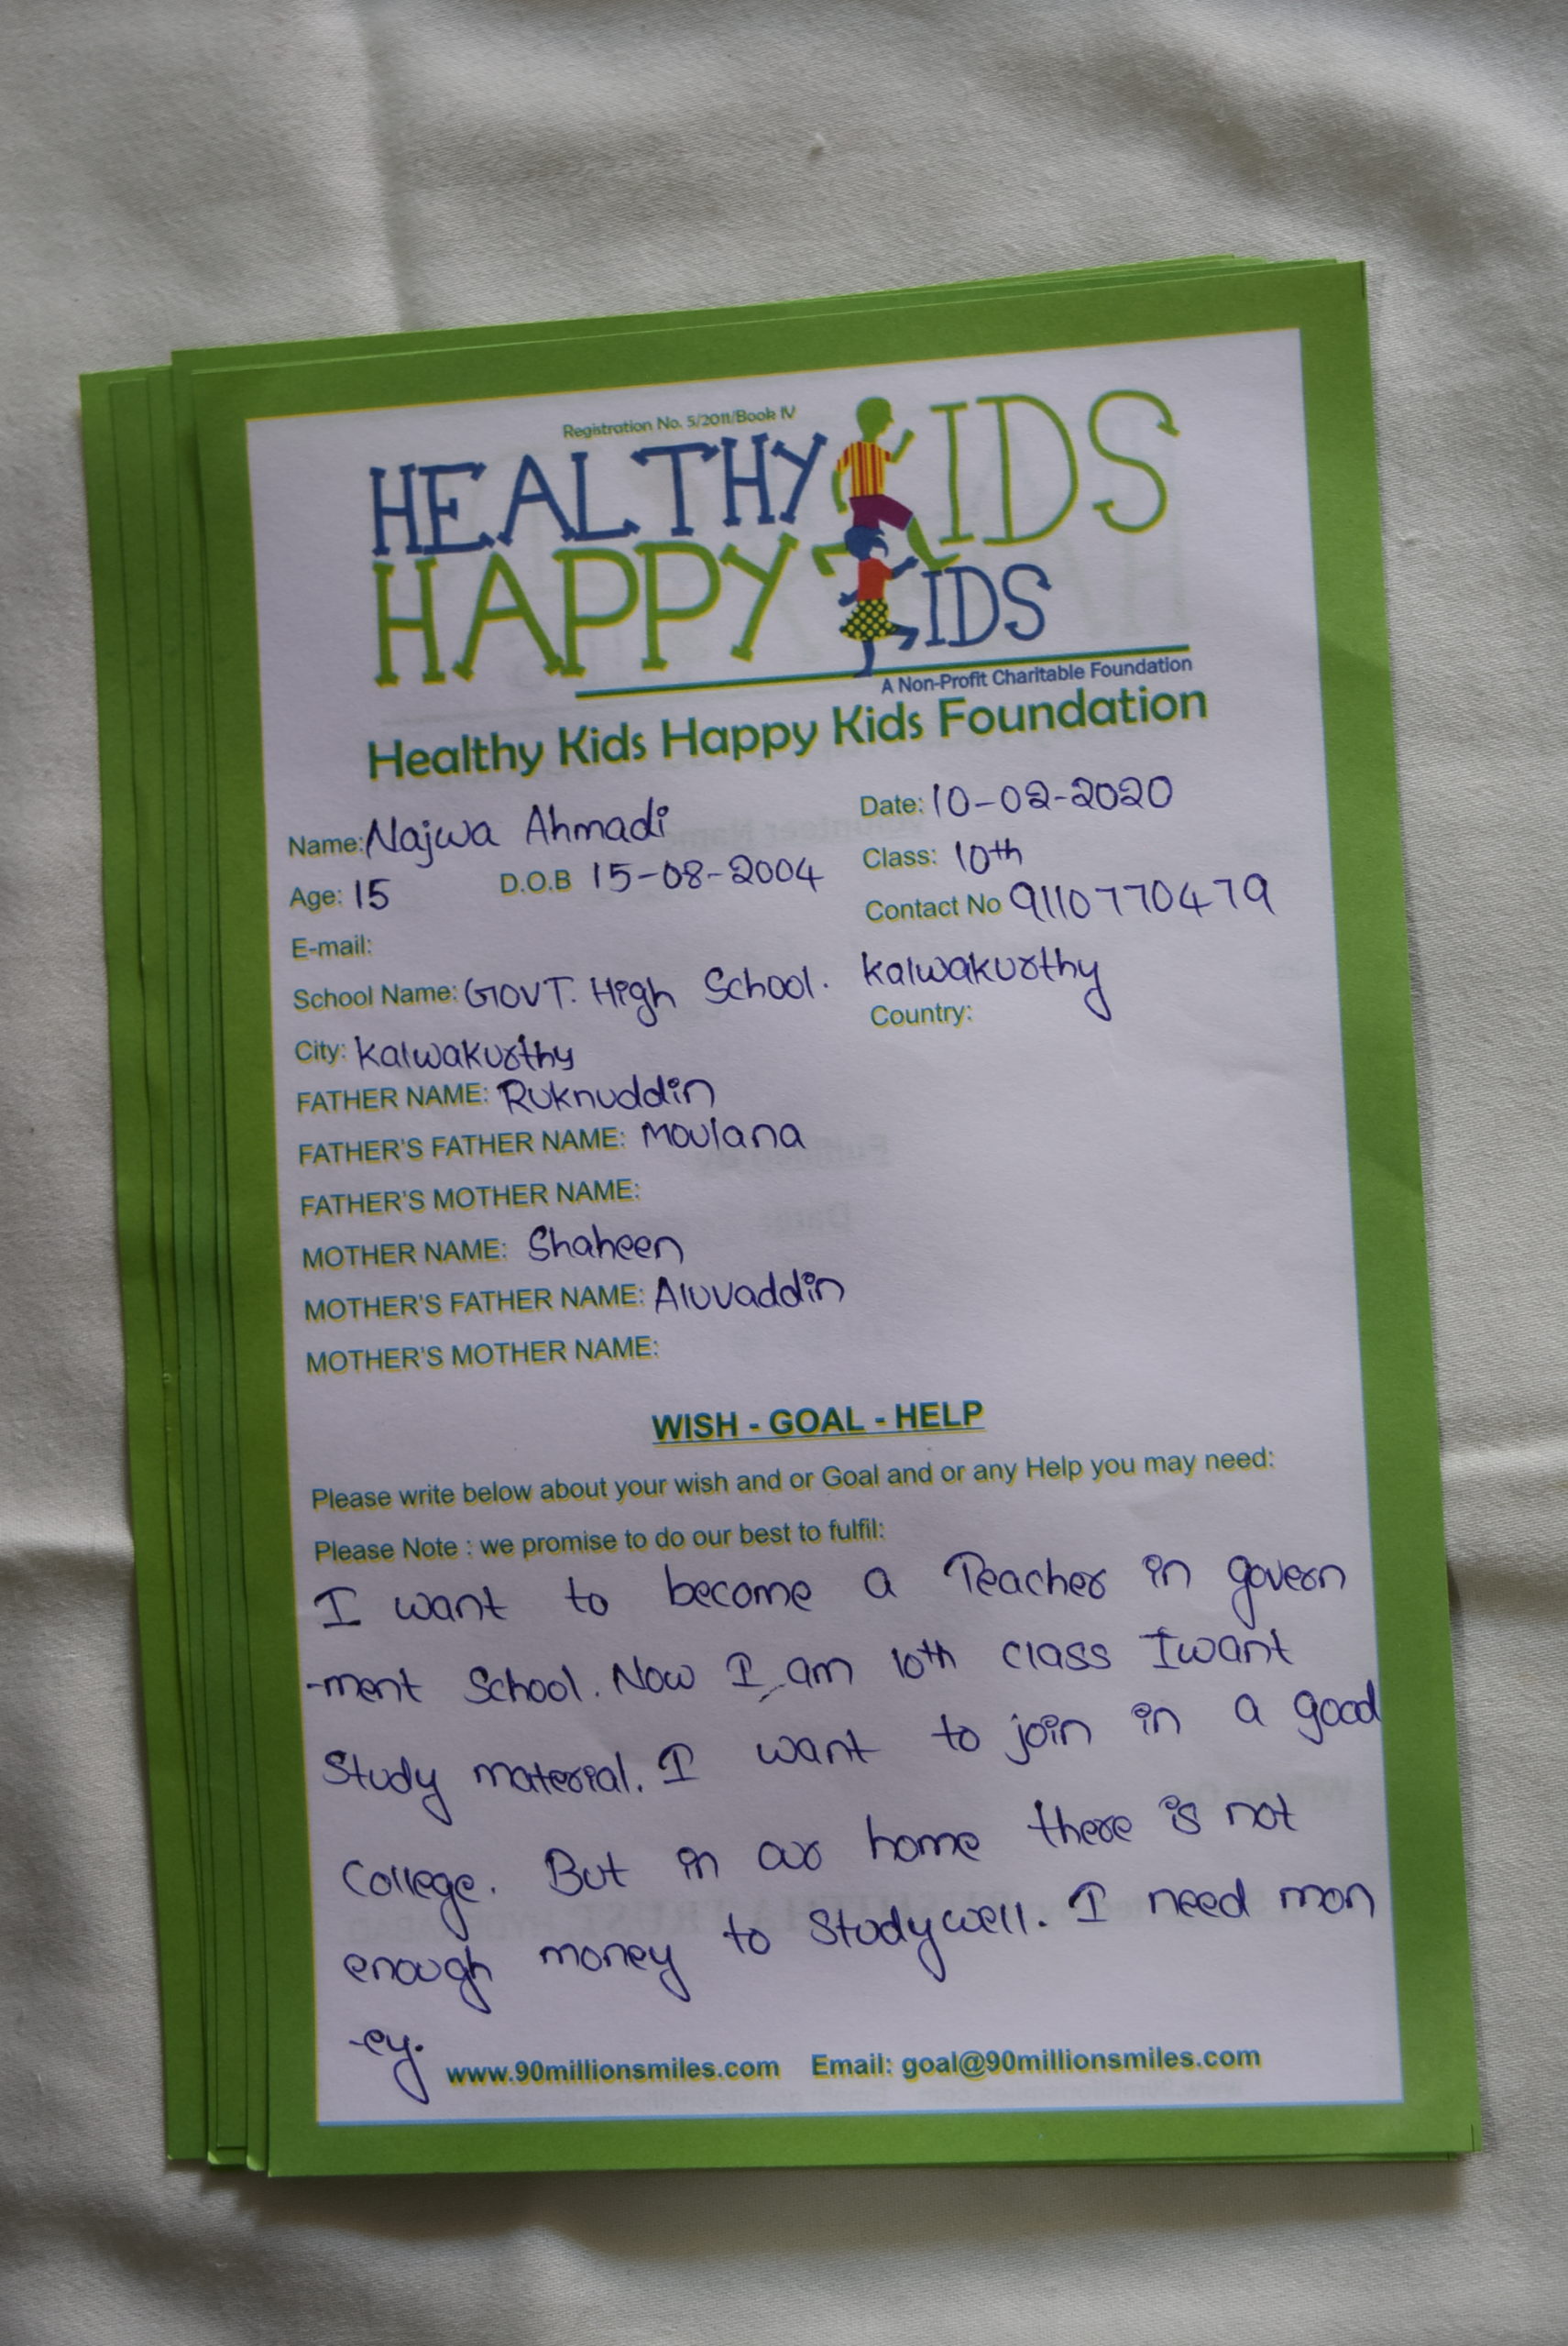 Registration No. 5/2011/Book IV
HEALTHY KIDS
HAPPY KIDS
A Non-Profit Charitable Foundation
Healthy Kids Happy Kids Foundation
Name: Najwa Ahmadi Date: 10-02-2020
Age: 15 D.O.B 15-08-2004 Class: 10th
Contact No 9110770479
E-mail:
School Name: GOVT. High School. Kalwakurthy
City: Kalwakurthy Country:
FATHER NAME: Ruknuddin
FATHER'S FATHER NAME: Moulana
FATHER'S MOTHER NAME:
MOTHER NAME: Shaheen
MOTHER'S FATHER NAME: Aluvaddin
MOTHER'S MOTHER NAME:
WISH - GOAL - HELP
Please write below about your wish and or Goal and or any Help you may need:
Please Note : we promise to do our best to fulfil:
I want to become a Teacher in govern
-ment School. Now I am 10th class I want
Study material. I want to join in a good
College. But in our home there is not
enough money to Study well. I need mon
-ey.
www.90millionsmiles.com Email: goal@90millionsmiles.com